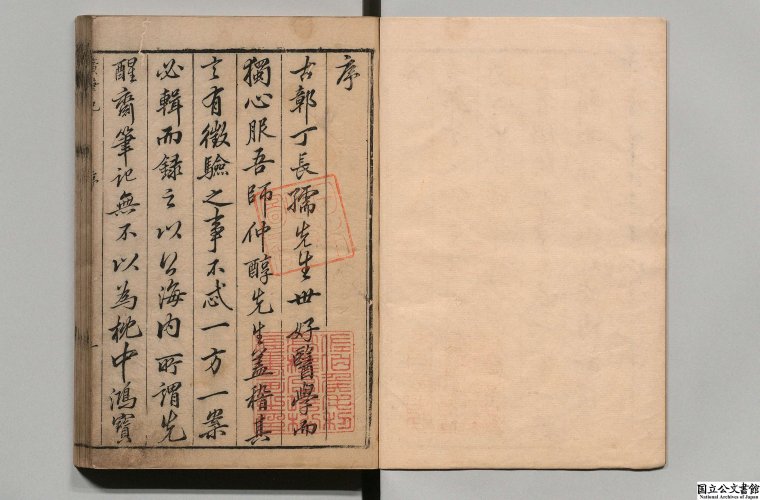 序
古鄣丁長孺先生世好醫學而
獨心服吾師仲醇先生蓋稽其
言有徵驗之事不忒一方一案
必輯而録之以公海内所謂先
醒齋筆記無不以為枕中鴻寶
国立公文書館
National Archives of Japan